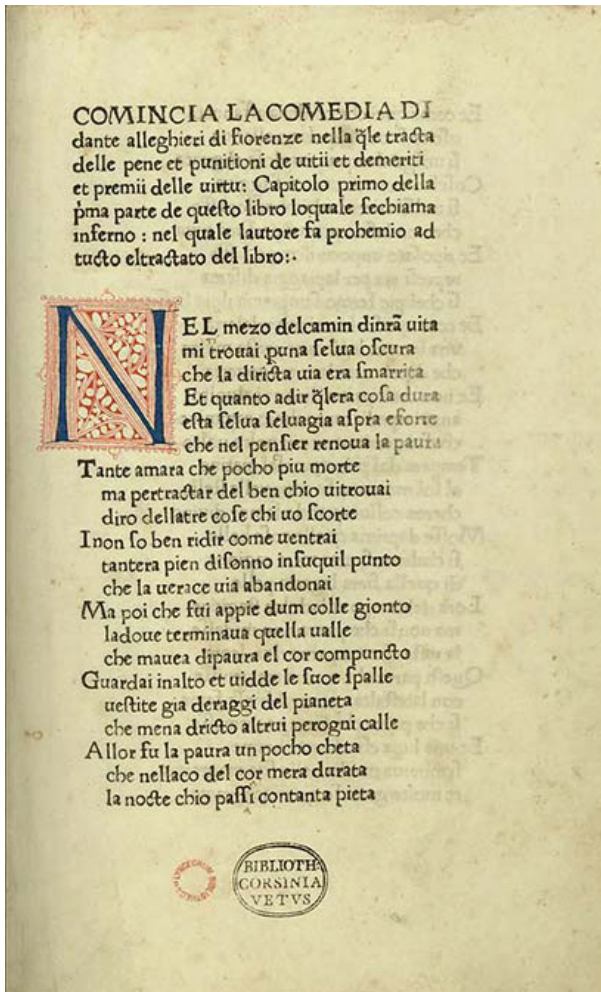 COMINCIA LACOMEDIA DI
dante alleghieri di fiorenze nella q̄le tracta
delle pene et punitioni de uitii et demeriti
et premii delle uirtu: Capitolo primo della
p̄ma parte de queſto libro loquale ſechiama
inferno : nel quale lautore fa prohemio ad
tucto eltractato del libro:·
NEL mezo delcamin dinr̄a uita
mi trouai ꝓuna ſelua oſcura
che la diricta uia era ſmarrita
Et quanto adir q̄lera coſa dura
eſta ſelua ſeluagia aſpra eforte
che nel penſier renoua la paura
Tante amara che pocho piu morte
ma pertractar del ben chio uitrouai
diro dellatre coſe chi uo ſcorte
I non ſo ben ridir come uentrai
tantera pien diſonno inſuquil punto
che la uerace uia abandonai
Ma poi che fui appie dum colle gionto
ladoue terminaua quella ualle
che mauea dipaura el cor compuncto
Guardai inalto et uidde le ſuoe ſpalle
ueſtite gia deraggi del pianeta
che mena dricto altrui perogni calle
Allor fu la paura un pocho cheta
che nellaco del cor mera durata
la nocte chio paſſi contanta pieta
BIBLIOTH
CORSINIA
VETVS